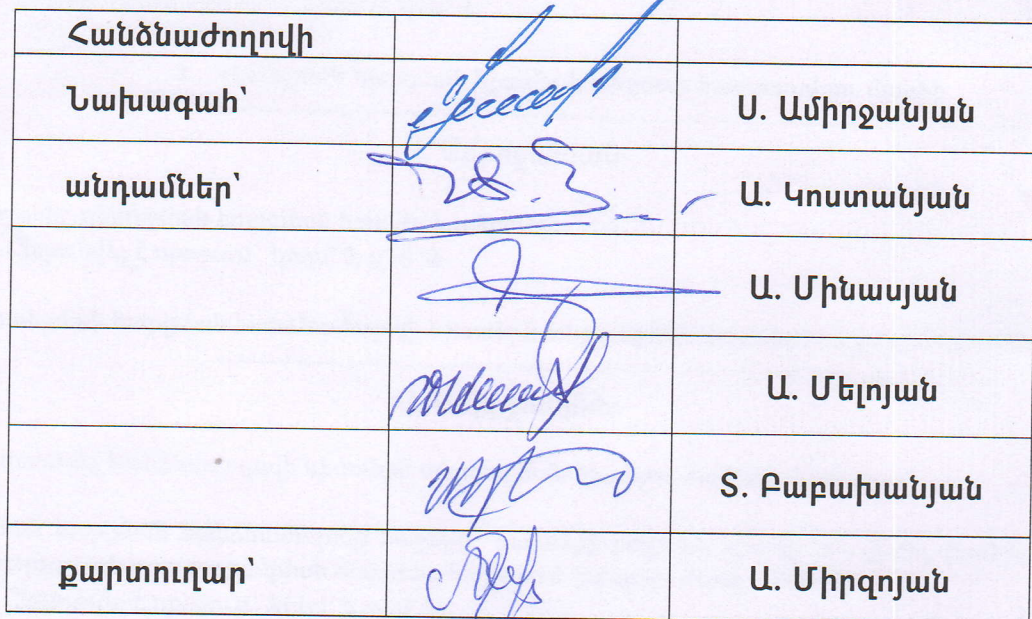 Հանձնաժողովի
Նախագահ՝ Ս. Ամիրջանյան
անդամներ՝ Ա. Կոստանյան
Ա. Մինասյան
Ա. Մելոյան
Տ. Բաբախանյան
քարտուղար՝ Ա. Միրզոյան